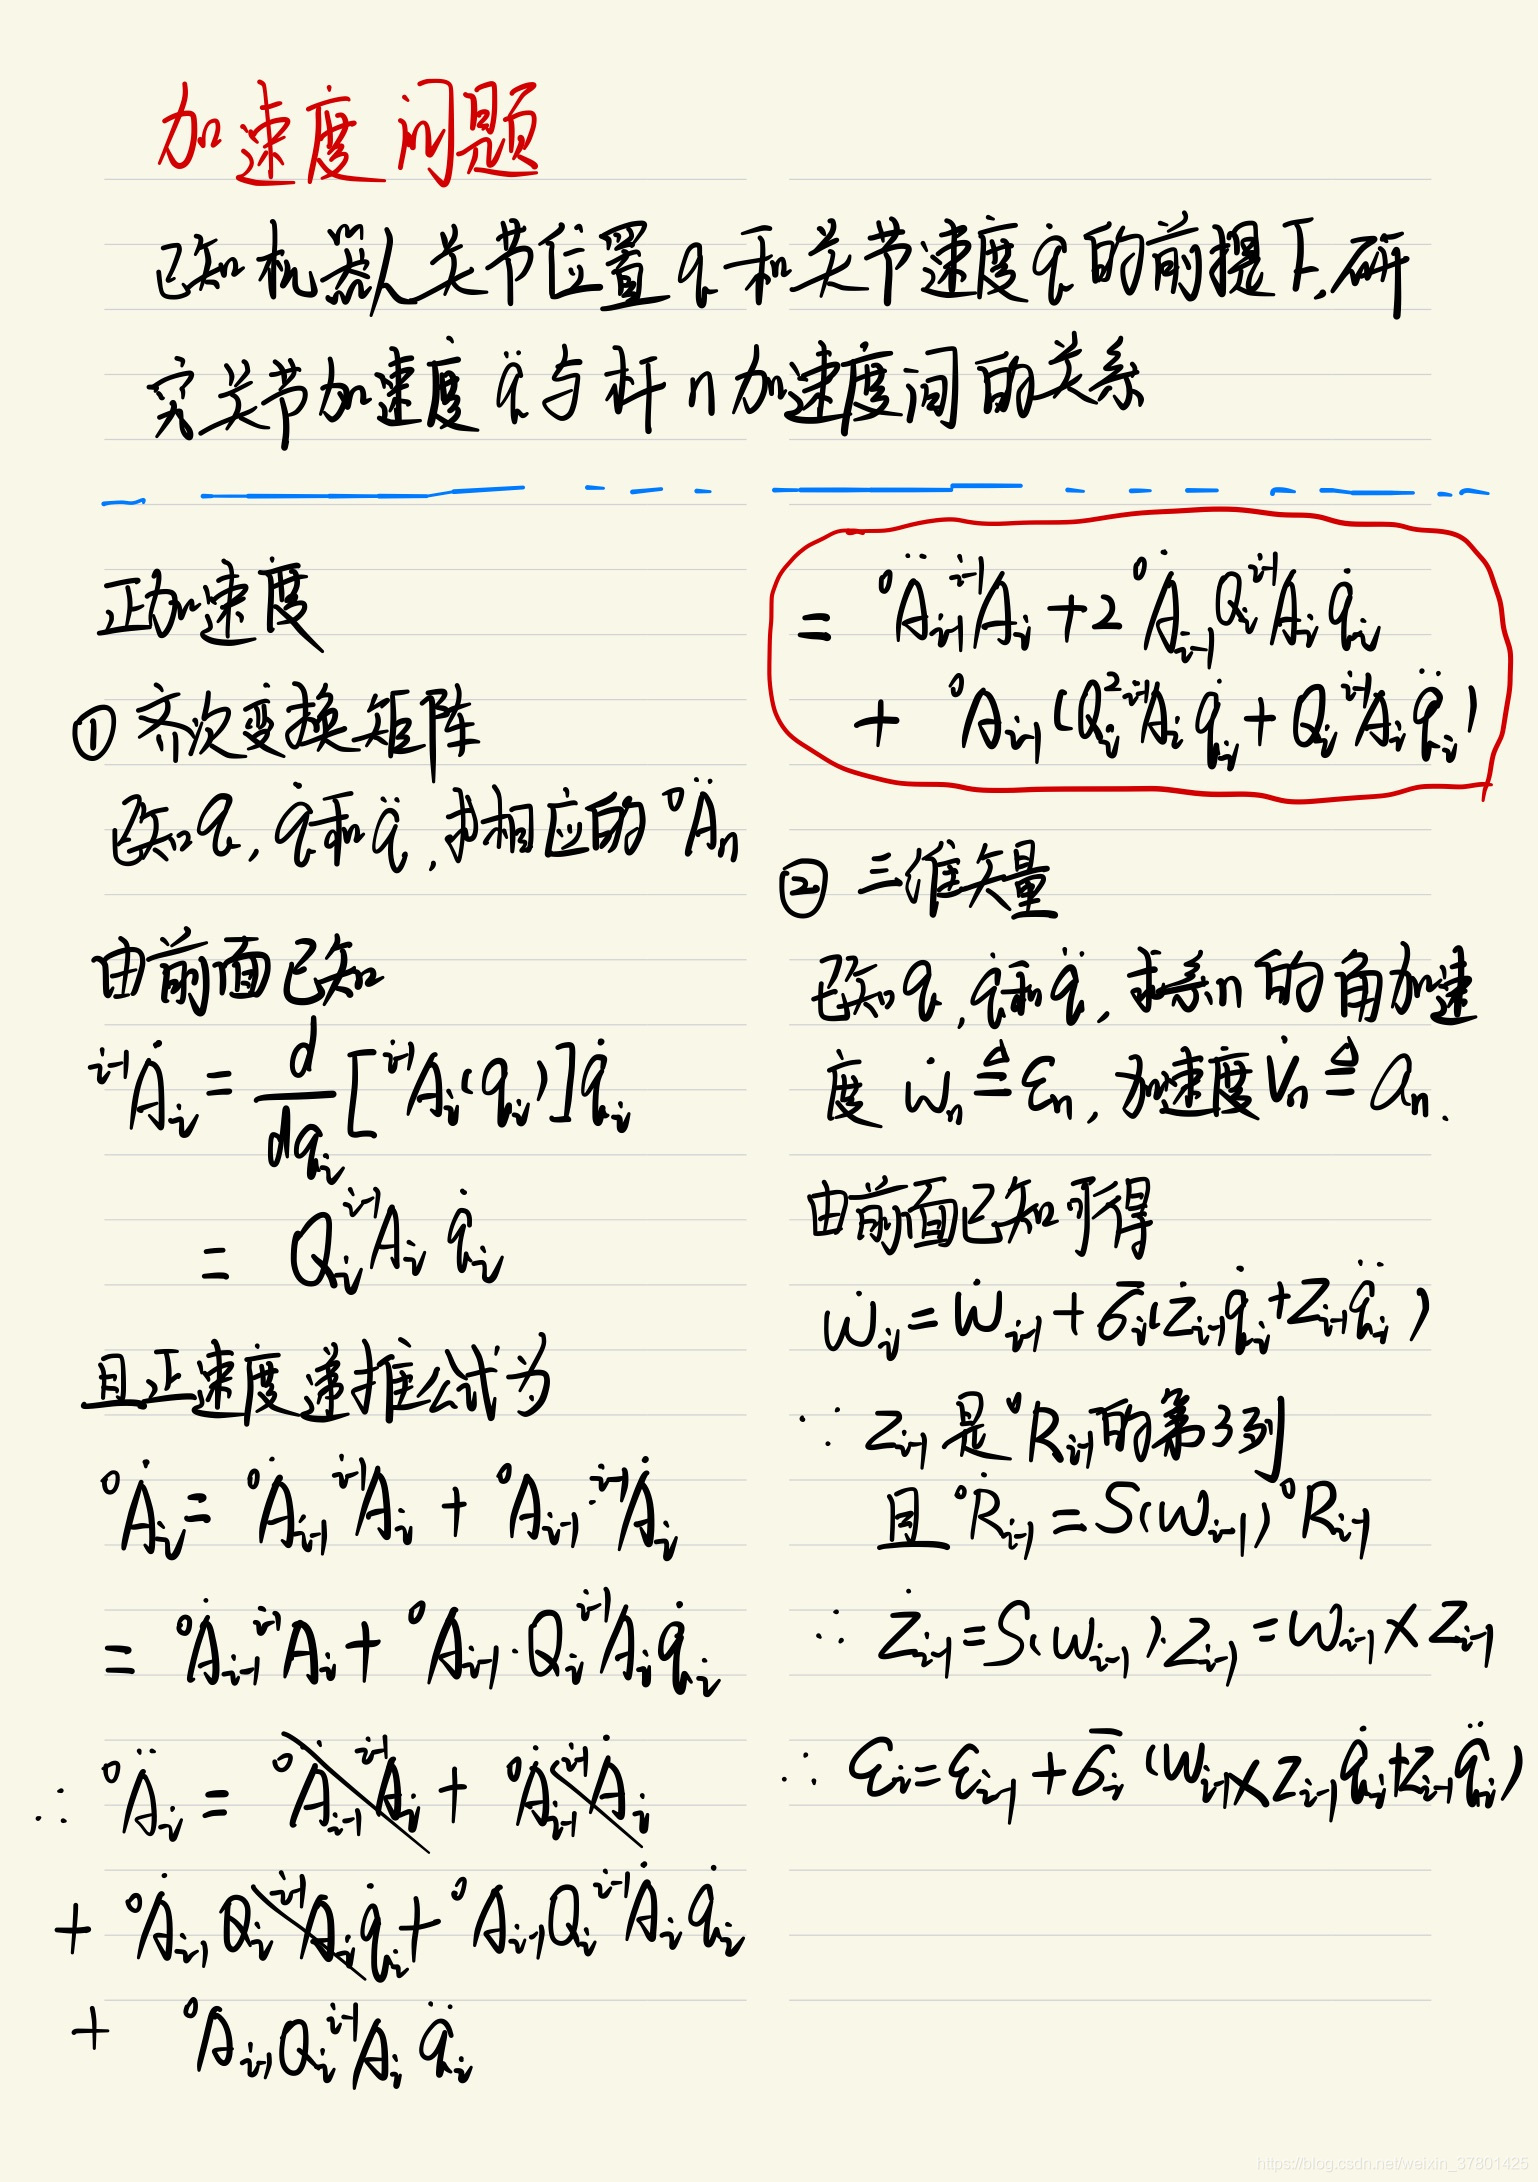 加速度问题
已知机器人关节位置 q 和关节速度 q̇ 的前提下,研
究关节加速度 q̈ 与杆 n 加速度间的关系
正加速度
① 齐次变换矩阵
已知 q, q̇ 和 q̈, 求相应的 ⁰Äₙ
由前面已知
ⁱ⁻¹Ȧᵢ = d/dqᵢ [ⁱ⁻¹Aᵢ(qᵢ)] q̇ᵢ
= Qᵢ ⁱ⁻¹Aᵢ q̇ᵢ
且正速度递推公式为
⁰Ȧᵢ = ⁰Ȧᵢ₋₁ ⁱ⁻¹Aᵢ + ⁰Aᵢ₋₁ · ⁱ⁻¹Ȧᵢ
= ⁰Ȧᵢ₋₁ ⁱ⁻¹Aᵢ + ⁰Aᵢ₋₁ · Qᵢ ⁱ⁻¹Aᵢ q̇ᵢ
∴ ⁰Äᵢ = ⁰Äᵢ₋₁ ⁱ⁻¹Aᵢ + ⁰Ȧᵢ₋₁ ⁱ⁻¹Ȧᵢ
+ ⁰Ȧᵢ₋₁ Qᵢ ⁱ⁻¹Aᵢ q̇ᵢ + ⁰Aᵢ₋₁ Qᵢ ⁱ⁻¹Ȧᵢ q̇ᵢ
+ ⁰Aᵢ₋₁ Qᵢ ⁱ⁻¹Aᵢ q̈ᵢ
= ⁰Äᵢ₋₁ ⁱ⁻¹Aᵢ + 2 ⁰Ȧᵢ₋₁ Qᵢ ⁱ⁻¹Aᵢ q̇ᵢ
+ ⁰Aᵢ₋₁ (Qᵢ² ⁱ⁻¹Aᵢ q̇ᵢ + Qᵢ ⁱ⁻¹Aᵢ q̈ᵢ)
② 三维矢量
已知 q, q̇ 和 q̈, 求系n 的角加速
度 ẇₙ ≜ εₙ, 加速度 V̇ₙ ≜ aₙ.
由前面已知可得
ẇᵢ = ẇᵢ₋₁ + σ̄ᵢ(żᵢ₋₁ q̇ᵢ + zᵢ₋₁ q̈ᵢ)
∵ zᵢ₋₁ 是 ⁰Rᵢ₋₁ 的第3列
且 ⁰Ṙᵢ₋₁ = S(wᵢ₋₁) ⁰Rᵢ₋₁
∴ żᵢ₋₁ = S(wᵢ₋₁)·zᵢ₋₁ = wᵢ₋₁ × zᵢ₋₁
∴ εᵢ = εᵢ₋₁ + σ̄ᵢ (wᵢ₋₁ × zᵢ₋₁ q̇ᵢ + zᵢ₋₁ q̈ᵢ)
https://blog.csdn.net/weixin_37801425